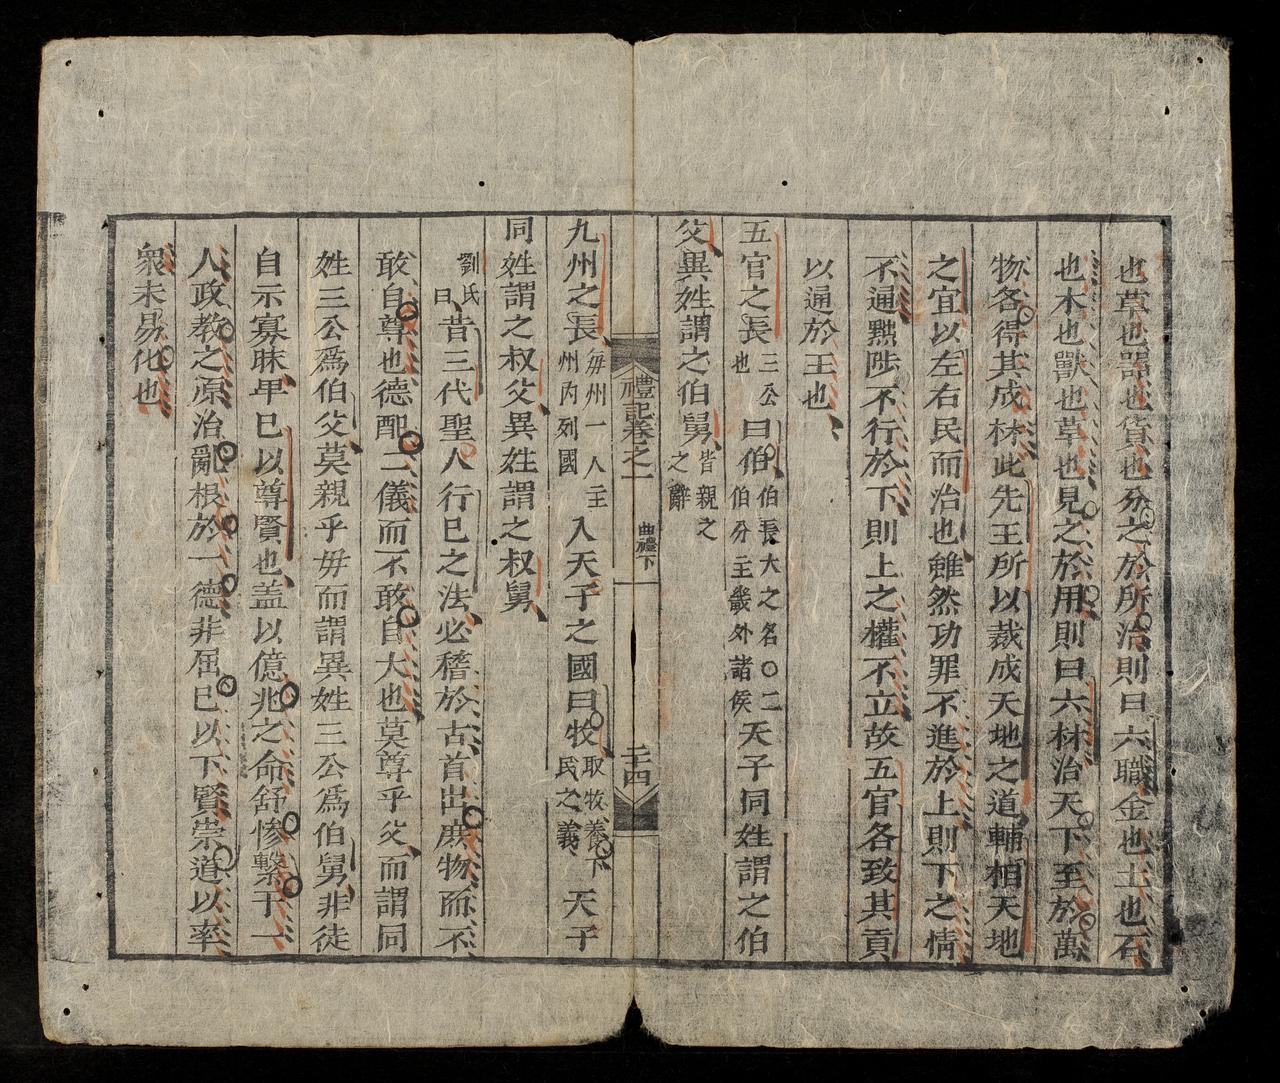 也草也器也貨也分之於所治則曰六職金也土也石
也木也獸也草也見之於用則曰六材治天下至於萬
物各得其成材此先王所以裁成天地之道輔相天地
之宜以左右民而治也雖然功罪不進於上則下之情
不通黜陟不行於下則上之權不立故五官各致其貢
以通於王也
五官之長三公也曰伯伯長大之名〇二伯分主畿外諸侯天子同姓謂之伯
父異姓謂之伯舅皆親之之辭
禮記卷之一 曲禮下 二十四
九州之長每州一人主州內列國入天子之國曰牧取牧養下民之義天子
同姓謂之叔父異姓謂之叔舅
劉氏曰昔三代聖人行己之法必稽於古首出庶物而不
敢自尊也德配二儀而不敢自大也莫尊乎父而謂同
姓三公爲伯父莫親乎母而謂異姓三公爲伯舅非徒
自示寡昧卑已以尊賢也盖以億兆之命舒慘繫于一
人政教之原治亂根於一德非屈已以下賢崇道以率
衆未易化也